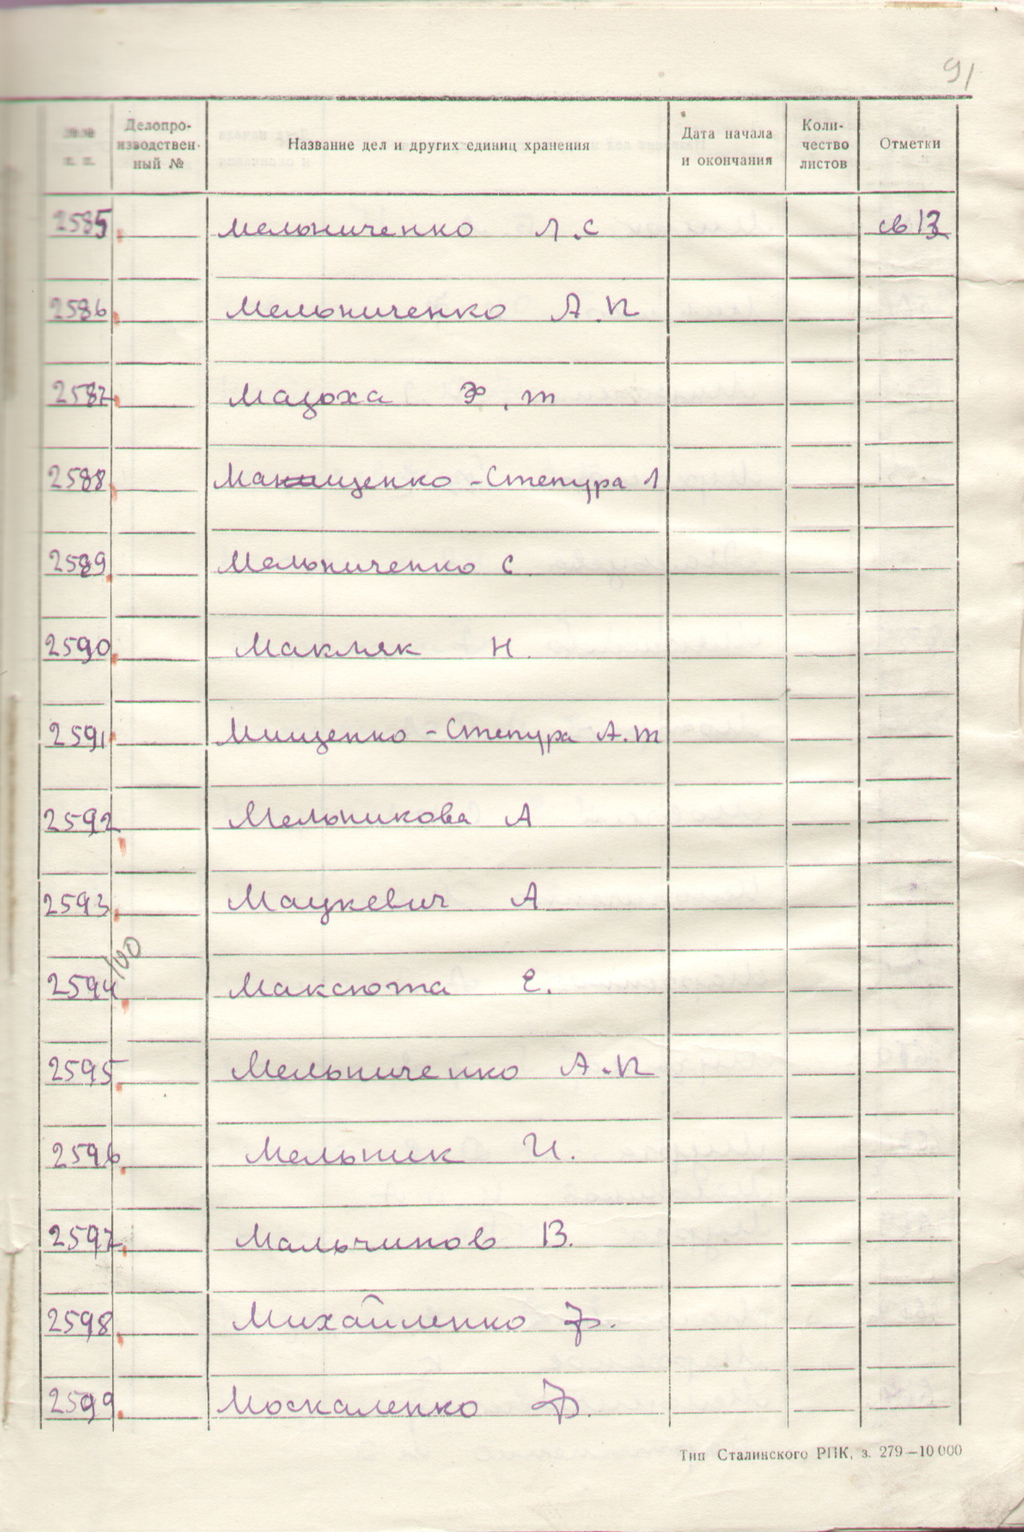 91
№№ п. п. Делопро- изводствен- ный № Название дел и других единиц хранения Дата начала и окончания Коли- чество листов Отметки
2585 Мельниченко Л.С св 13
2586 Мельниченко А.П
2587 Мазоха Ф.Т
2588 Манищенко - Степура Л
2589 Мельниченко С
2590 Макляк Н
2591 Мищенко - Степура А.Т
2592 Мельникова А
2593 Мацкевич А
100
2594 Максюта Е.
2595 Мельниченко А.П
2596 Мельник И.
2597 Мальчинов В.
2598 Михайленко Ф.
2599 Москаленко Ф.
Тип Сталинского РПК, з. 279—10 000